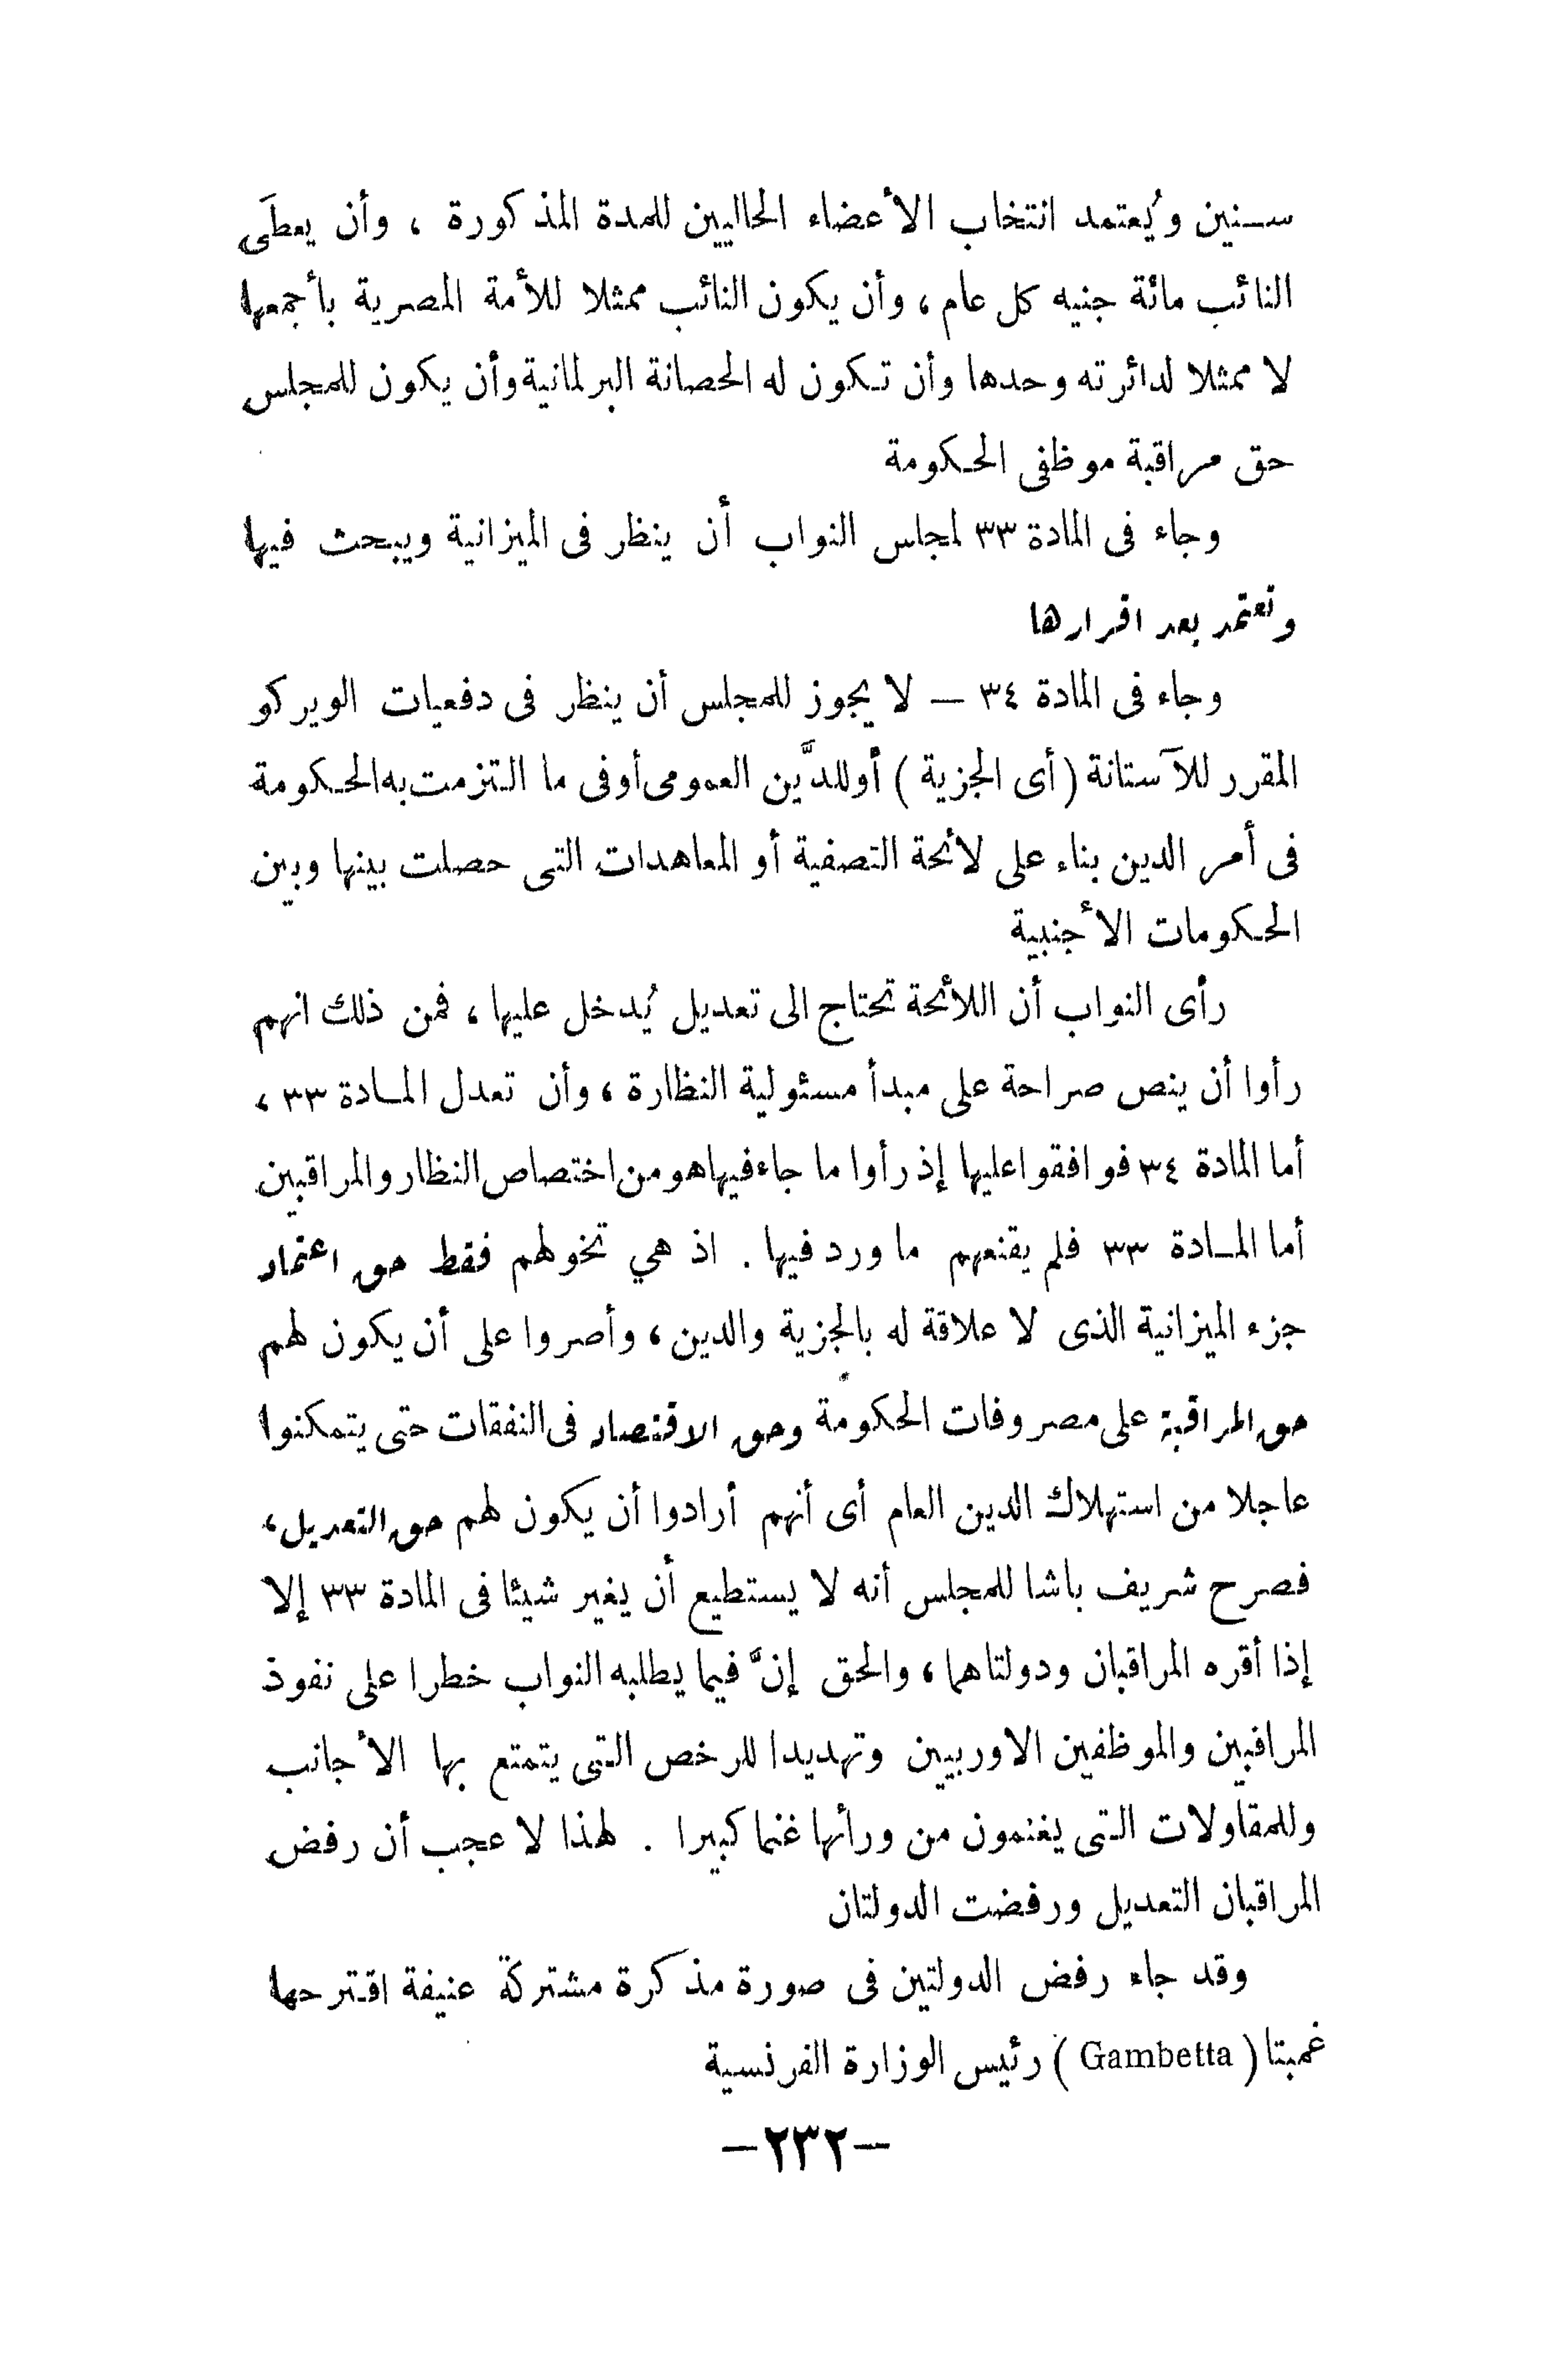 سنين ويُعتمد انتخاب الأعضاء الحاليين للمدة المذكورة ، وأن يعطَى
النائب مائة جنيه كل عام ، وأن يكون النائب ممثلا للأمة المصرية بأجمعها
لا ممثلا لدائرته وحدها وأن تكون له الحصانة البرلمانية وأن يكون للمجلس
حق مراقبة موظفى الحكومة
وجاء فى المادة ٣٣ لمجلس النواب أن ينظر فى الميزانية ويبحث فيها
وتعتمد بعد اقرارها
وجاء فى المادة ٣٤ — لا يجوز للمجلس أن ينظر فى دفعيات الويركو
المقرر للآستانة ( أى الجزية ) أو للدَّين العمومى أو فى ما التزمت به الحكومة
فى أمر الدين بناء على لائحة التصفية أو المعاهدات التى حصلت بينها وبين
الحكومات الأجنبية
رأى النواب أن اللائحة تحتاج الى تعديل يُدخل عليها ، فمن ذلك انهم
رأوا أن ينص صراحة على مبدأ مسئولية النظارة ، وأن تعدل المادة ٣٣ ،
أما المادة ٣٤ فوافقوا عليها إذ رأوا ما جاء فيها هو من اختصاص النظار والمراقبين
أما المادة ٣٣ فلم يقنعهم ما ورد فيها . اذ هي تخولهم فقط حق اعتماد
جزء الميزانية الذى لا علاقة له بالجزية والدين ، وأصروا على أن يكون لهم
حق المراقبة على مصروفات الحكومة وحق الاقتصاد فى النفقات حتى يتمكنوا
عاجلا من استهلاك الدين العام أى أنهم أرادوا أن يكون لهم حق التعديل ،
فصرح شريف باشا للمجلس أنه لا يستطيع أن يغير شيئا فى المادة ٣٣ إلا
إذا أقره المراقبان ودولتاهما ، والحق إنَّ فيما يطلبه النواب خطرا على نفوذ
المراقبين والموظفين الاوربيين وتهديدا للرخص التى يتمتع بها الأجانب
وللمقاولات التى يغنمون من ورأئها غنما كبيرا . لهذا لا عجب أن رفض
المراقبان التعديل ورفضت الدولتان
وقد جاء رفض الدولتين فى صورة مذكرة مشتركة عنيفة اقترحها
غمبتا ( Gambetta ) رئيس الوزارة الفرنسية
—٢٣٢—